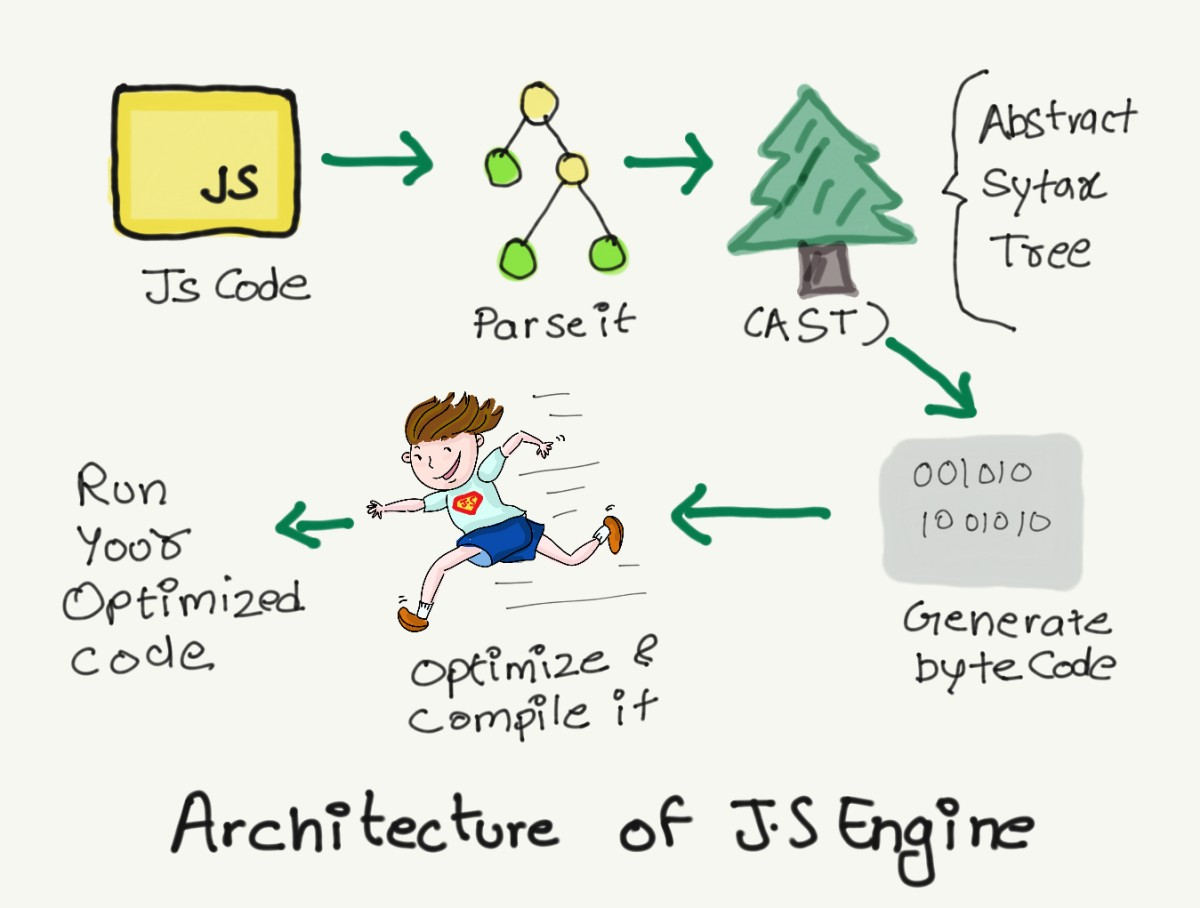 JS
Js Code
Parse it
(AST)
Abstract
Sytax
Tree
001010
1001010
Generate
byte Code
JS
Optimize &
Compile it
Run
Your
Optimized
code
Architecture of J.S Engine